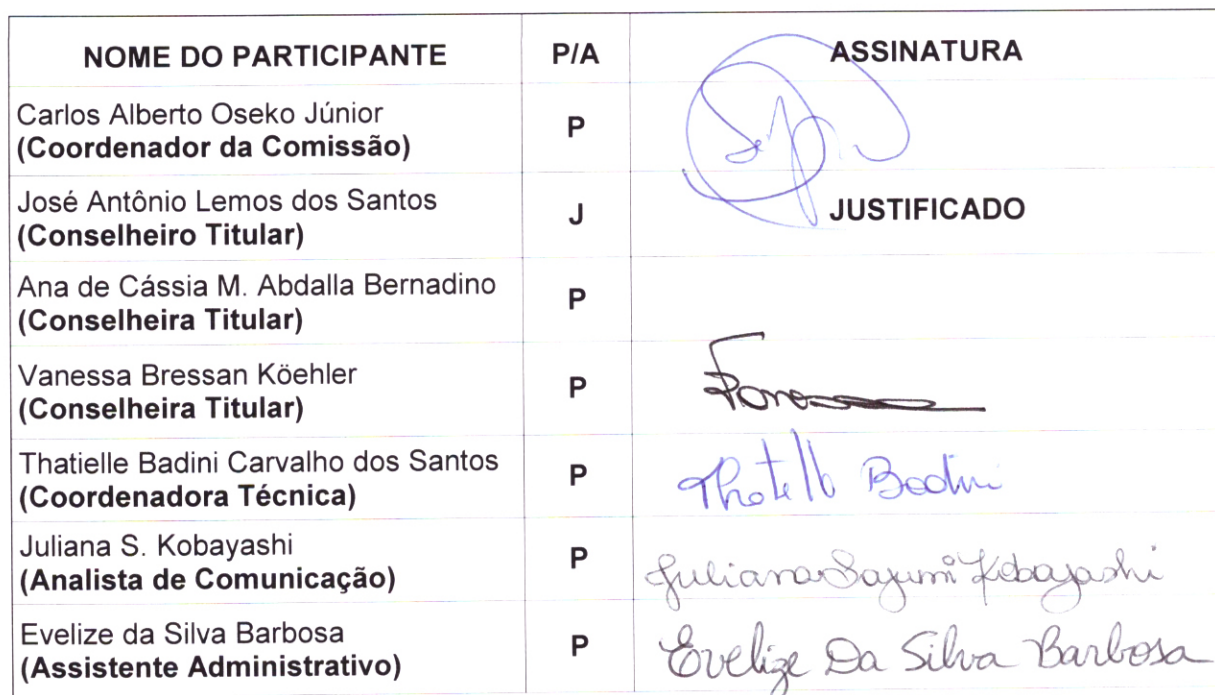 NOME DO PARTICIPANTE P/A ASSINATURA
Carlos Alberto Oseko Júnior
(Coordenador da Comissão) P
José Antônio Lemos dos Santos
(Conselheiro Titular) J JUSTIFICADO
Ana de Cássia M. Abdalla Bernadino
(Conselheira Titular) P
Vanessa Bressan Köehler
(Conselheira Titular) P
Thatielle Badini Carvalho dos Santos
(Coordenadora Técnica) P Badini
Juliana S. Kobayashi
(Analista de Comunicação) P Juliana Sayumi Kobayashi
Evelize da Silva Barbosa
(Assistente Administrativo) P Evelize Da Silva Barbosa